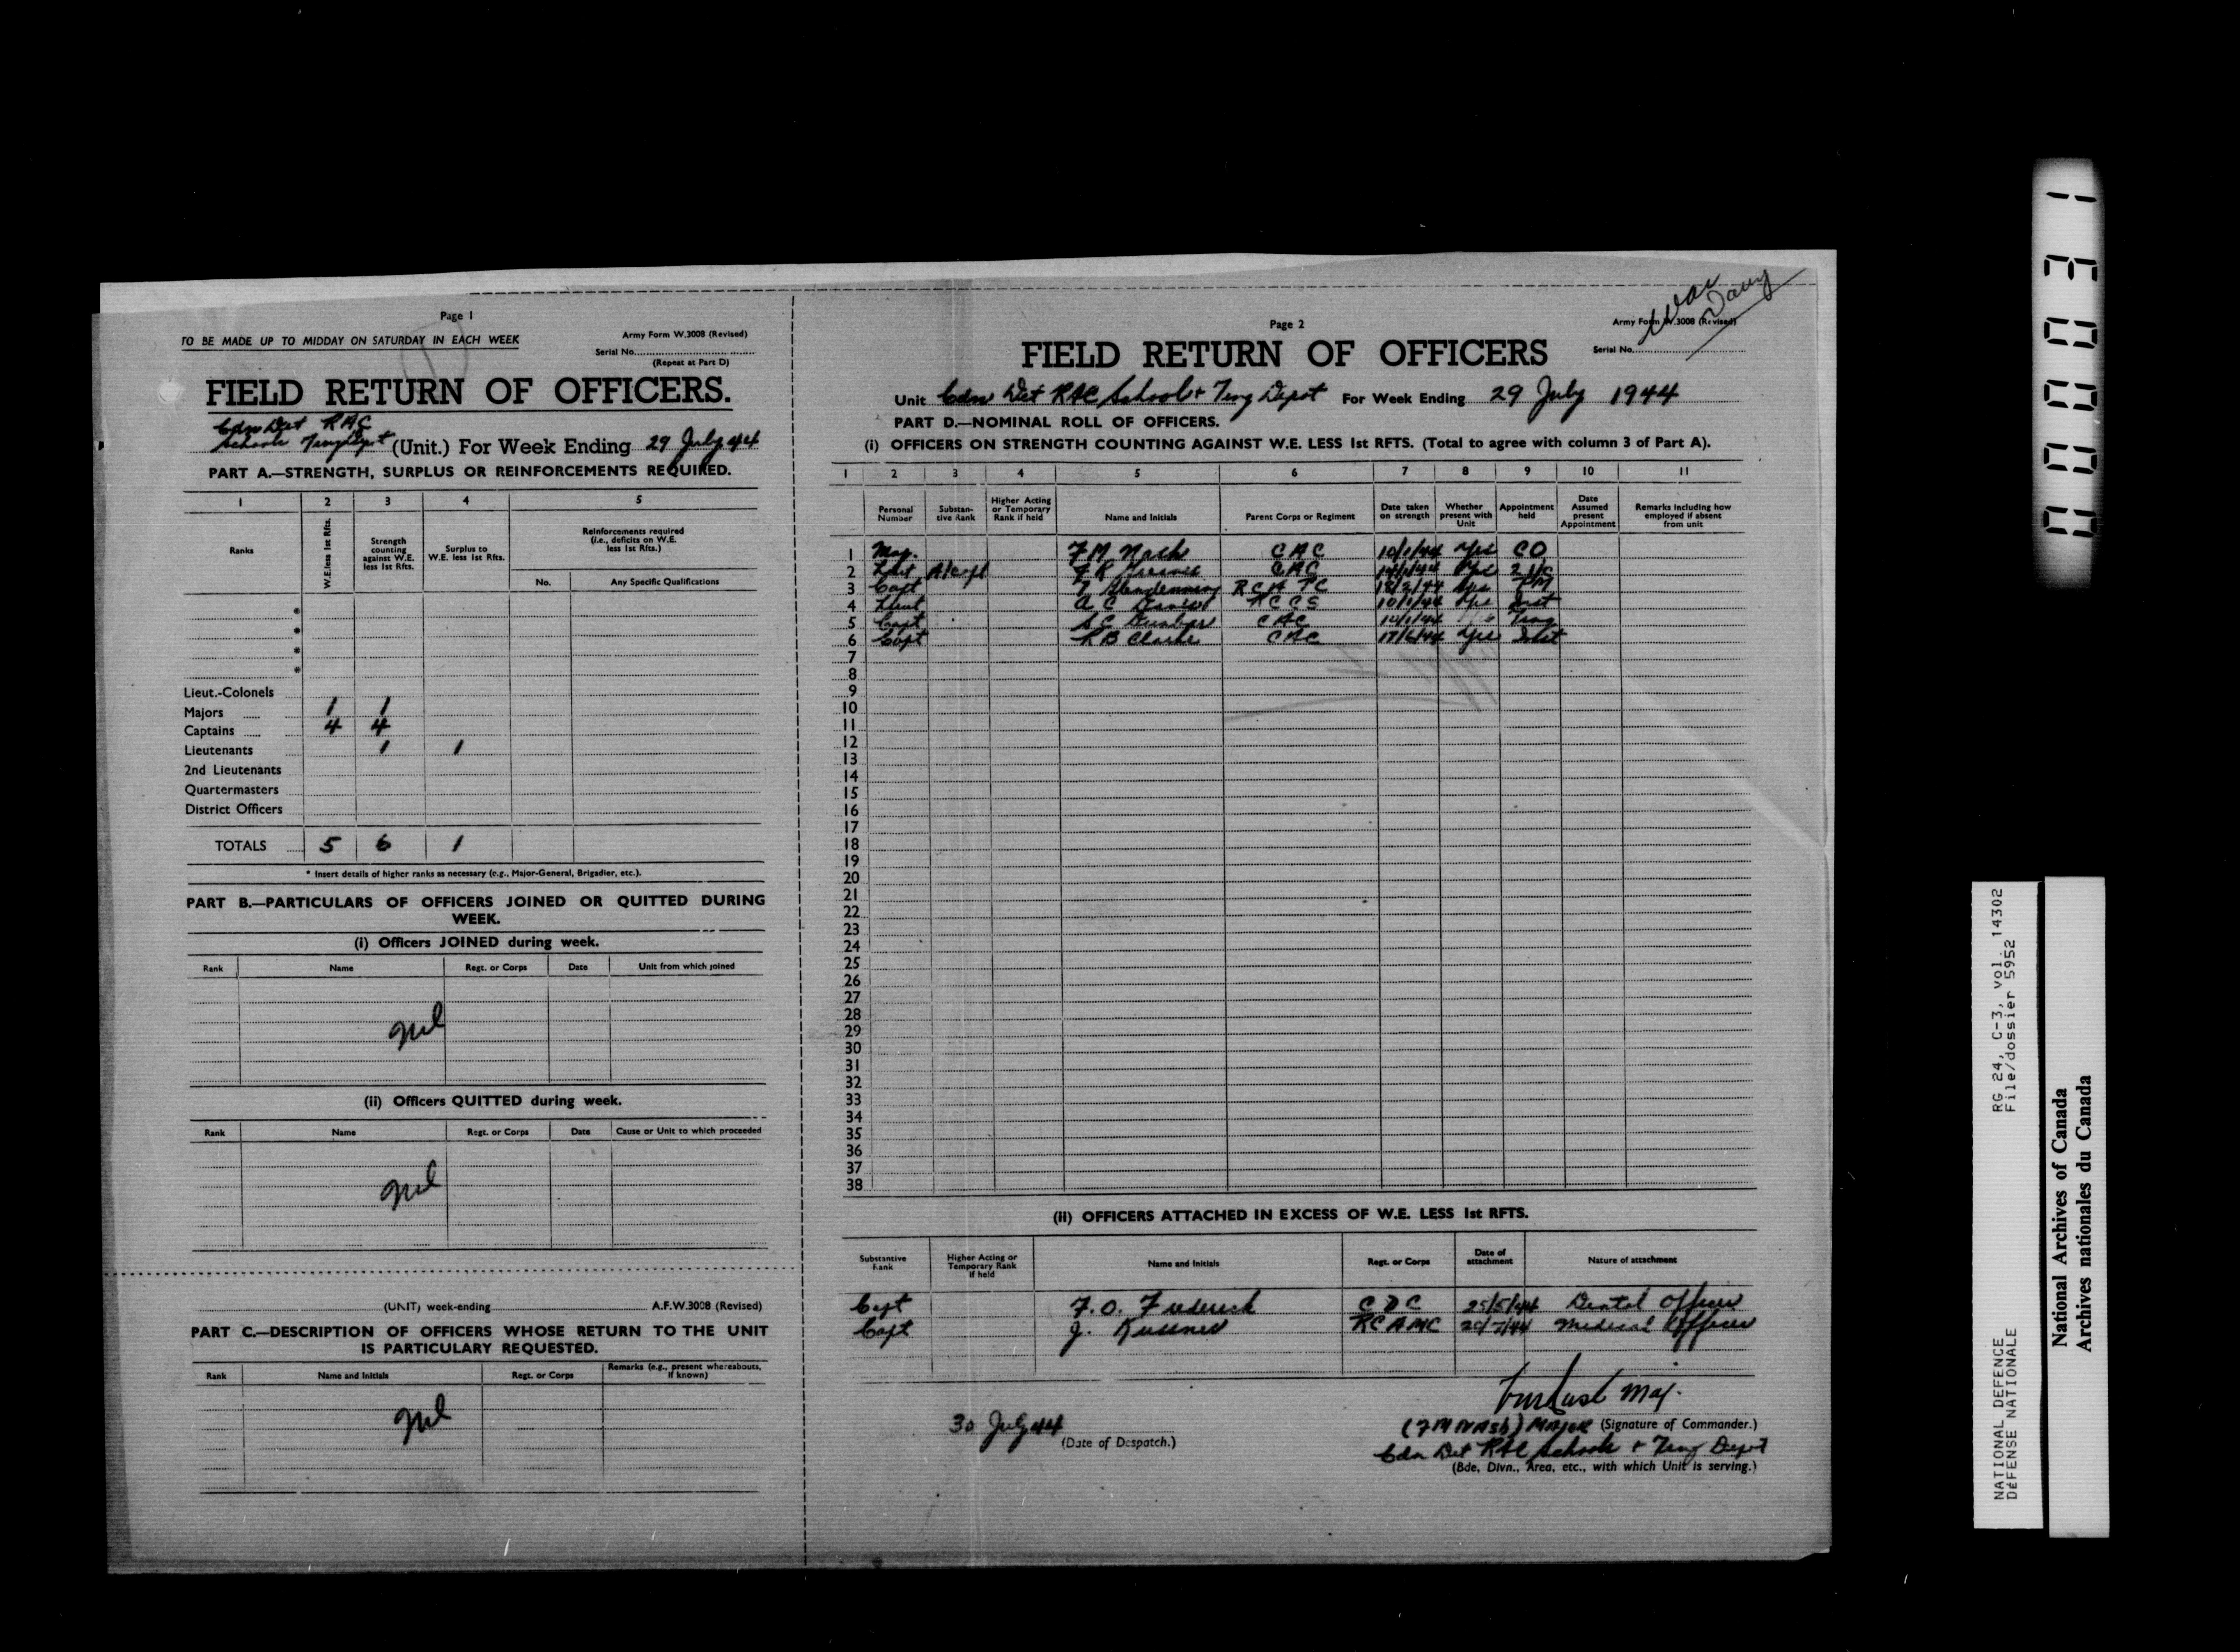 Page 1
TO BE MADE UP TO MIDDAY ON SATURDAY IN EACH WEEK
Army Form W.3008 (Revised)
Serial No.
(Repeat at Part D)
FIELD RETURN OF OFFICERS.
Cdn Det RAC
Schools Trng Dept (Unit.) For Week Ending 29 July 44
PART A.—STRENGTH, SURPLUS OR REINFORCEMENTS REQUIRED.
1 2 3 4 5
Ranks
W.E. less 1st Rfts.
Strength counting against W.E. less 1st Rfts.
Surplus to W.E. less 1st Rfts.
Reinforcements required (i.e., deficits on W.E. less 1st Rfts.)
No. Any Specific Qualifications
*
*
*
*
Lieut.-Colonels
Majors 1 1
Captains 4 4
Lieutenants 1 1
2nd Lieutenants
Quartermasters
District Officers
TOTALS 5 6 1
* Insert details of higher ranks as necessary (e.g., Major-General, Brigadier, etc.).
PART B.—PARTICULARS OF OFFICERS JOINED OR QUITTED DURING
WEEK.
(i) Officers JOINED during week.
Rank Name Regt. or Corps Date Unit from which joined
Nil
(ii) Officers QUITTED during week.
Rank Name Regt. or Corps Date Cause or Unit to which proceeded
Nil
(UNIT) week-ending A.F.W.3008 (Revised)
PART C.—DESCRIPTION OF OFFICERS WHOSE RETURN TO THE UNIT
IS PARTICULARY REQUESTED.
Rank Name and Initials Regt. or Corps Remarks (e.g., present whereabouts, if known)
Nil
War
Diary
Page 2
Army Form W.3008 (Revised)
Serial No.
FIELD RETURN OF OFFICERS
Unit Cdn Det RAC Schools + Trng Depot For Week Ending 29 July 1944
PART D.—NOMINAL ROLL OF OFFICERS.
(i) OFFICERS ON STRENGTH COUNTING AGAINST W.E. LESS 1st RFTS. (Total to agree with column 3 of Part A).
1 2 3 4 5 6 7 8 9 10 11
Personal Number
Substantive Rank
Higher Acting or Temporary Rank if held
Name and Initials
Parent Corps or Regiment
Date taken on strength
Whether present with Unit
Appointment held
Date Assumed present Appointment
Remarks including how employed if absent from unit
1 Maj. F M Nash CAC 10/1/44 Yes CO
2 Lieut A/Capt F R CAC Yes 2 I/C
3 Capt Yes
4 Lieut A C 10/1/44 Yes Inst
5 Capt S C Dunbar CAC 10/1/44 Trng
6 Capt R B Clarke CAC 17/6/44 Yes
7
8
9
10
11
12
13
14
15
16
17
18
19
20
21
22
23
24
25
26
27
28
29
30
31
32
33
34
35
36
37
38
(ii) OFFICERS ATTACHED IN EXCESS OF W.E. LESS 1st RFTS.
Substantive Rank
Higher Acting or Temporary Rank if held
Name and Initials
Regt. or Corps
Date of attachment
Nature of attachment
Capt F. O. Frederick CDC 25/5/44 Dental Officer
Capt J. RCAMC Medical Officer
FM Nash Maj.
30 July 44
(Date of Despatch.)
(FM Nash) MAJOR (Signature of Commander.)
Cdn Det RAC Schools + Trng Depot
(Bde, Divn., Area, etc., with which Unit is serving.)
000031
RG 24, C-3, vol. 14302
File/dossier 5952
NATIONAL DEFENCE
DÉFENSE NATIONALE
National Archives of Canada
Archives nationales du Canada